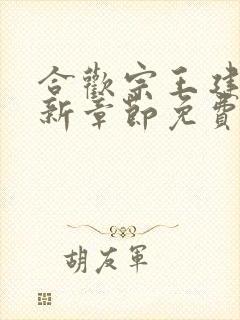 合歡宗王建
新章節免費
胡友軍